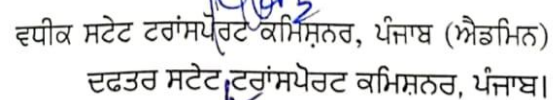 ਵਧੀਕ ਸਟੇਟ ਟਰਾਂਸਪੋਰਟ ਕਮਿਸ਼ਨਰ, ਪੰਜਾਬ (ਐਡਮਿਨ)
ਦਫਤਰ ਸਟੇਟ ਟਰਾਂਸਪੋਰਟ ਕਮਿਸ਼ਨਰ, ਪੰਜਾਬ।